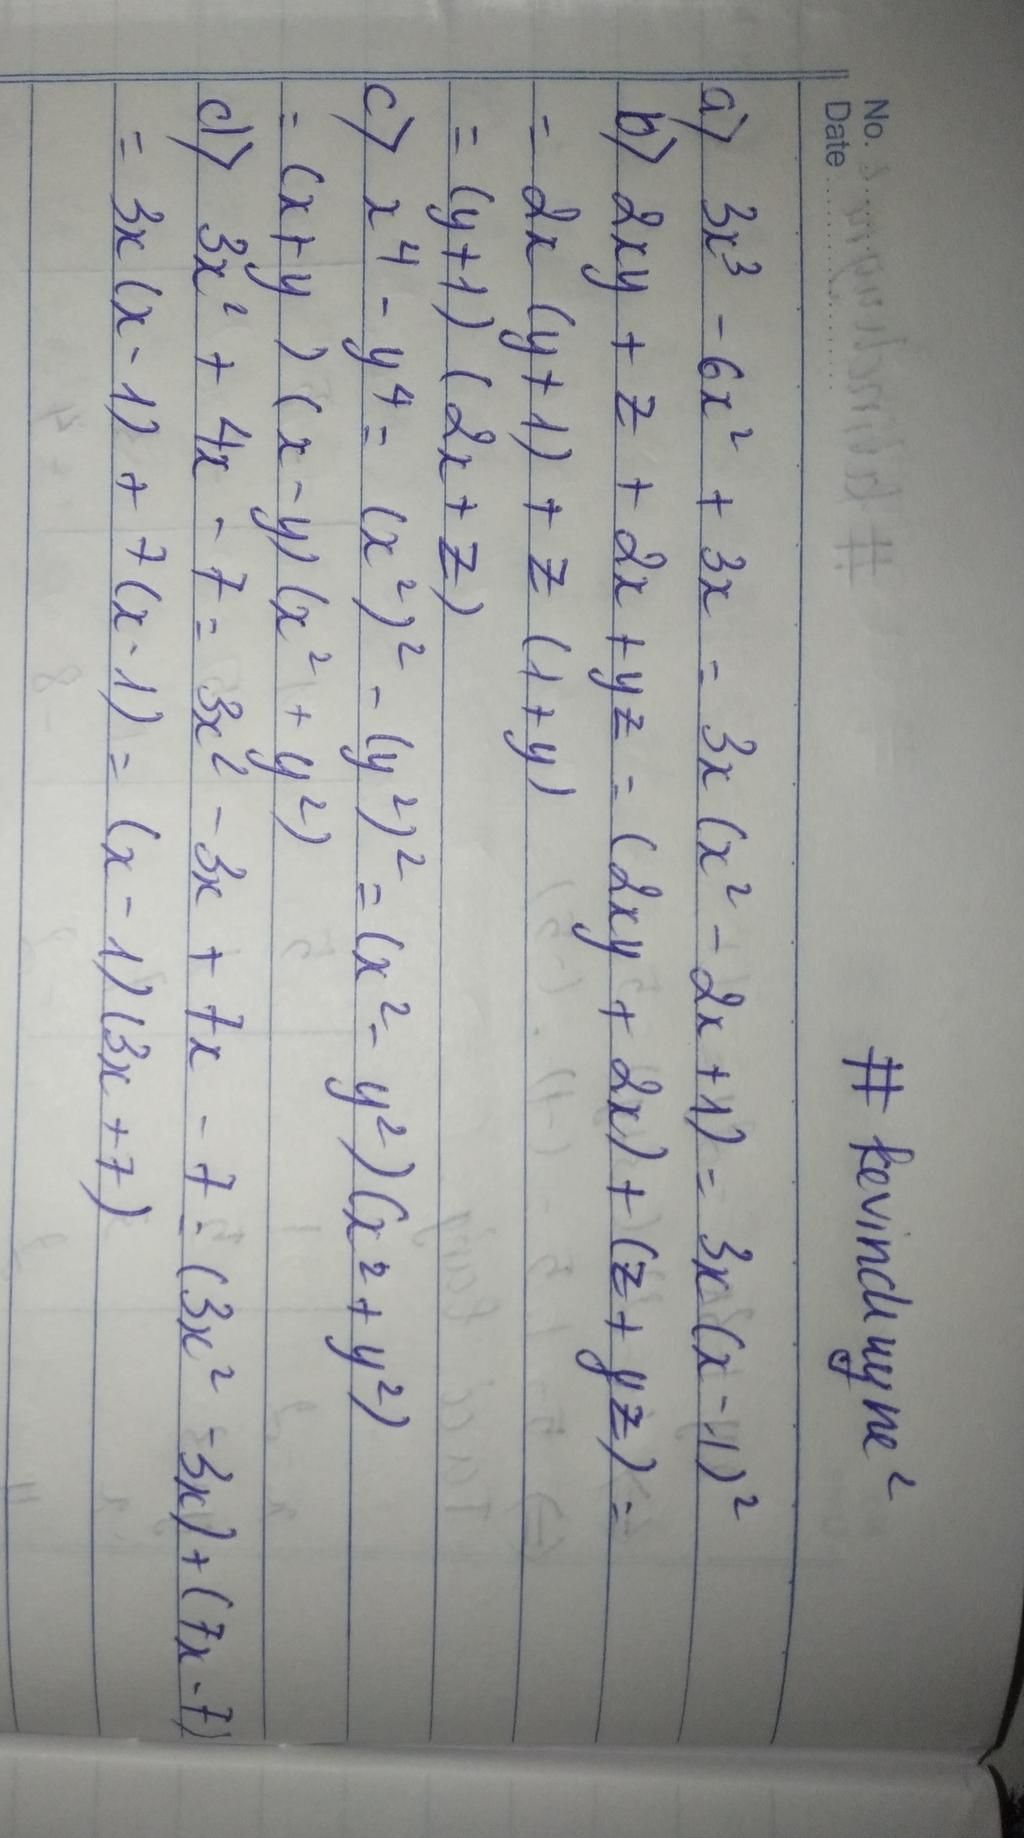 # kevinduyne²
No.
Date
a) 3x³ - 6x² + 3x = 3x (x² - 2x + 1) = 3x (x - 1)²
b) 2xy + z + 2x + yz = (2xy + 2x) + (z + yz) =
= 2x (y + 1) + z (1 + y)
= (y + 1) (2x + z)
c) x⁴ - y⁴ = (x²)² - (y²)² = (x² - y²) (x² + y²)
= (x + y) (x - y) (x² + y²)
d) 3x² + 4x - 7 = 3x² - 3x + 7x - 7 = (3x² - 3x) + (7x - 7)
= 3x (x - 1) + 7 (x - 1) = (x - 1) (3x + 7)